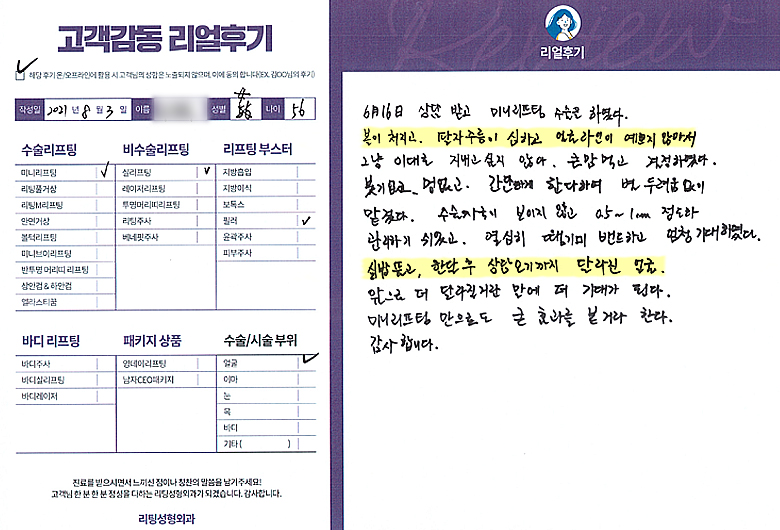 고객감동 리얼후기
해당 후기 온/오프라인에 활용 시 고객님의 성함은 노출되지 않으며, 이에 동의 합니다(EX. 김OO님의 후기)
작성일 2021 년 8 월 3 일 이름 성별 나이 56
수술리프팅
미니리프팅
리팅풀거상
리팅M리프팅
안면거상
볼턱리프팅
미니브이리프팅
반투명 머리띠 리프팅
상안검 & 하안검
엘라스티꿈
비수술리프팅
실리프팅
레이저리프팅
투명머리띠리프팅
리팅주사
베네핏주사
리프팅 부스터
지방흡입
지방이식
보톡스
필러
윤곽주사
피부주사
바디 리프팅
바디주사
바디실리프팅
바디레이저
패키지 상품
영네이리프팅
남자CEO패키지
수술/시술 부위
얼굴
이마
눈
목
바디
기타 ( )
진료를 받으시면서 느끼신 점이나 칭찬의 말씀을 남겨주세요!
고객님 한 분 한 분 정성을 다하는 리팅성형외과가 되겠습니다. 감사합니다.
리팅성형외과
Review
리얼후기
6月16日 상담 받고 미니리프팅 수술을 하였다.
볼이 처지고, 팔자주름이 심하고 얼굴라인이 예쁘지 않아서
그냥 이대로 지내고 싶지 않아, 큰맘먹고 결정하였다.
붓기없고, 멍없고, 간단하게 한다하여 별 두려움 없이
맡겼다. 수술자국이 보이지 않고 0.5~1cm 정도라
관리하기 쉬웠고, 열심히 땡기미 밴드하고 엄청 기대하였다.
실밥 뜯고, 한달 후 상담오기까지 달라진 얼굴.
앞으로 더 달라질거란 말에 더 기대가 된다.
미니리프팅 만으로도 큰 효과를 본거라 한다.
감사합니다.